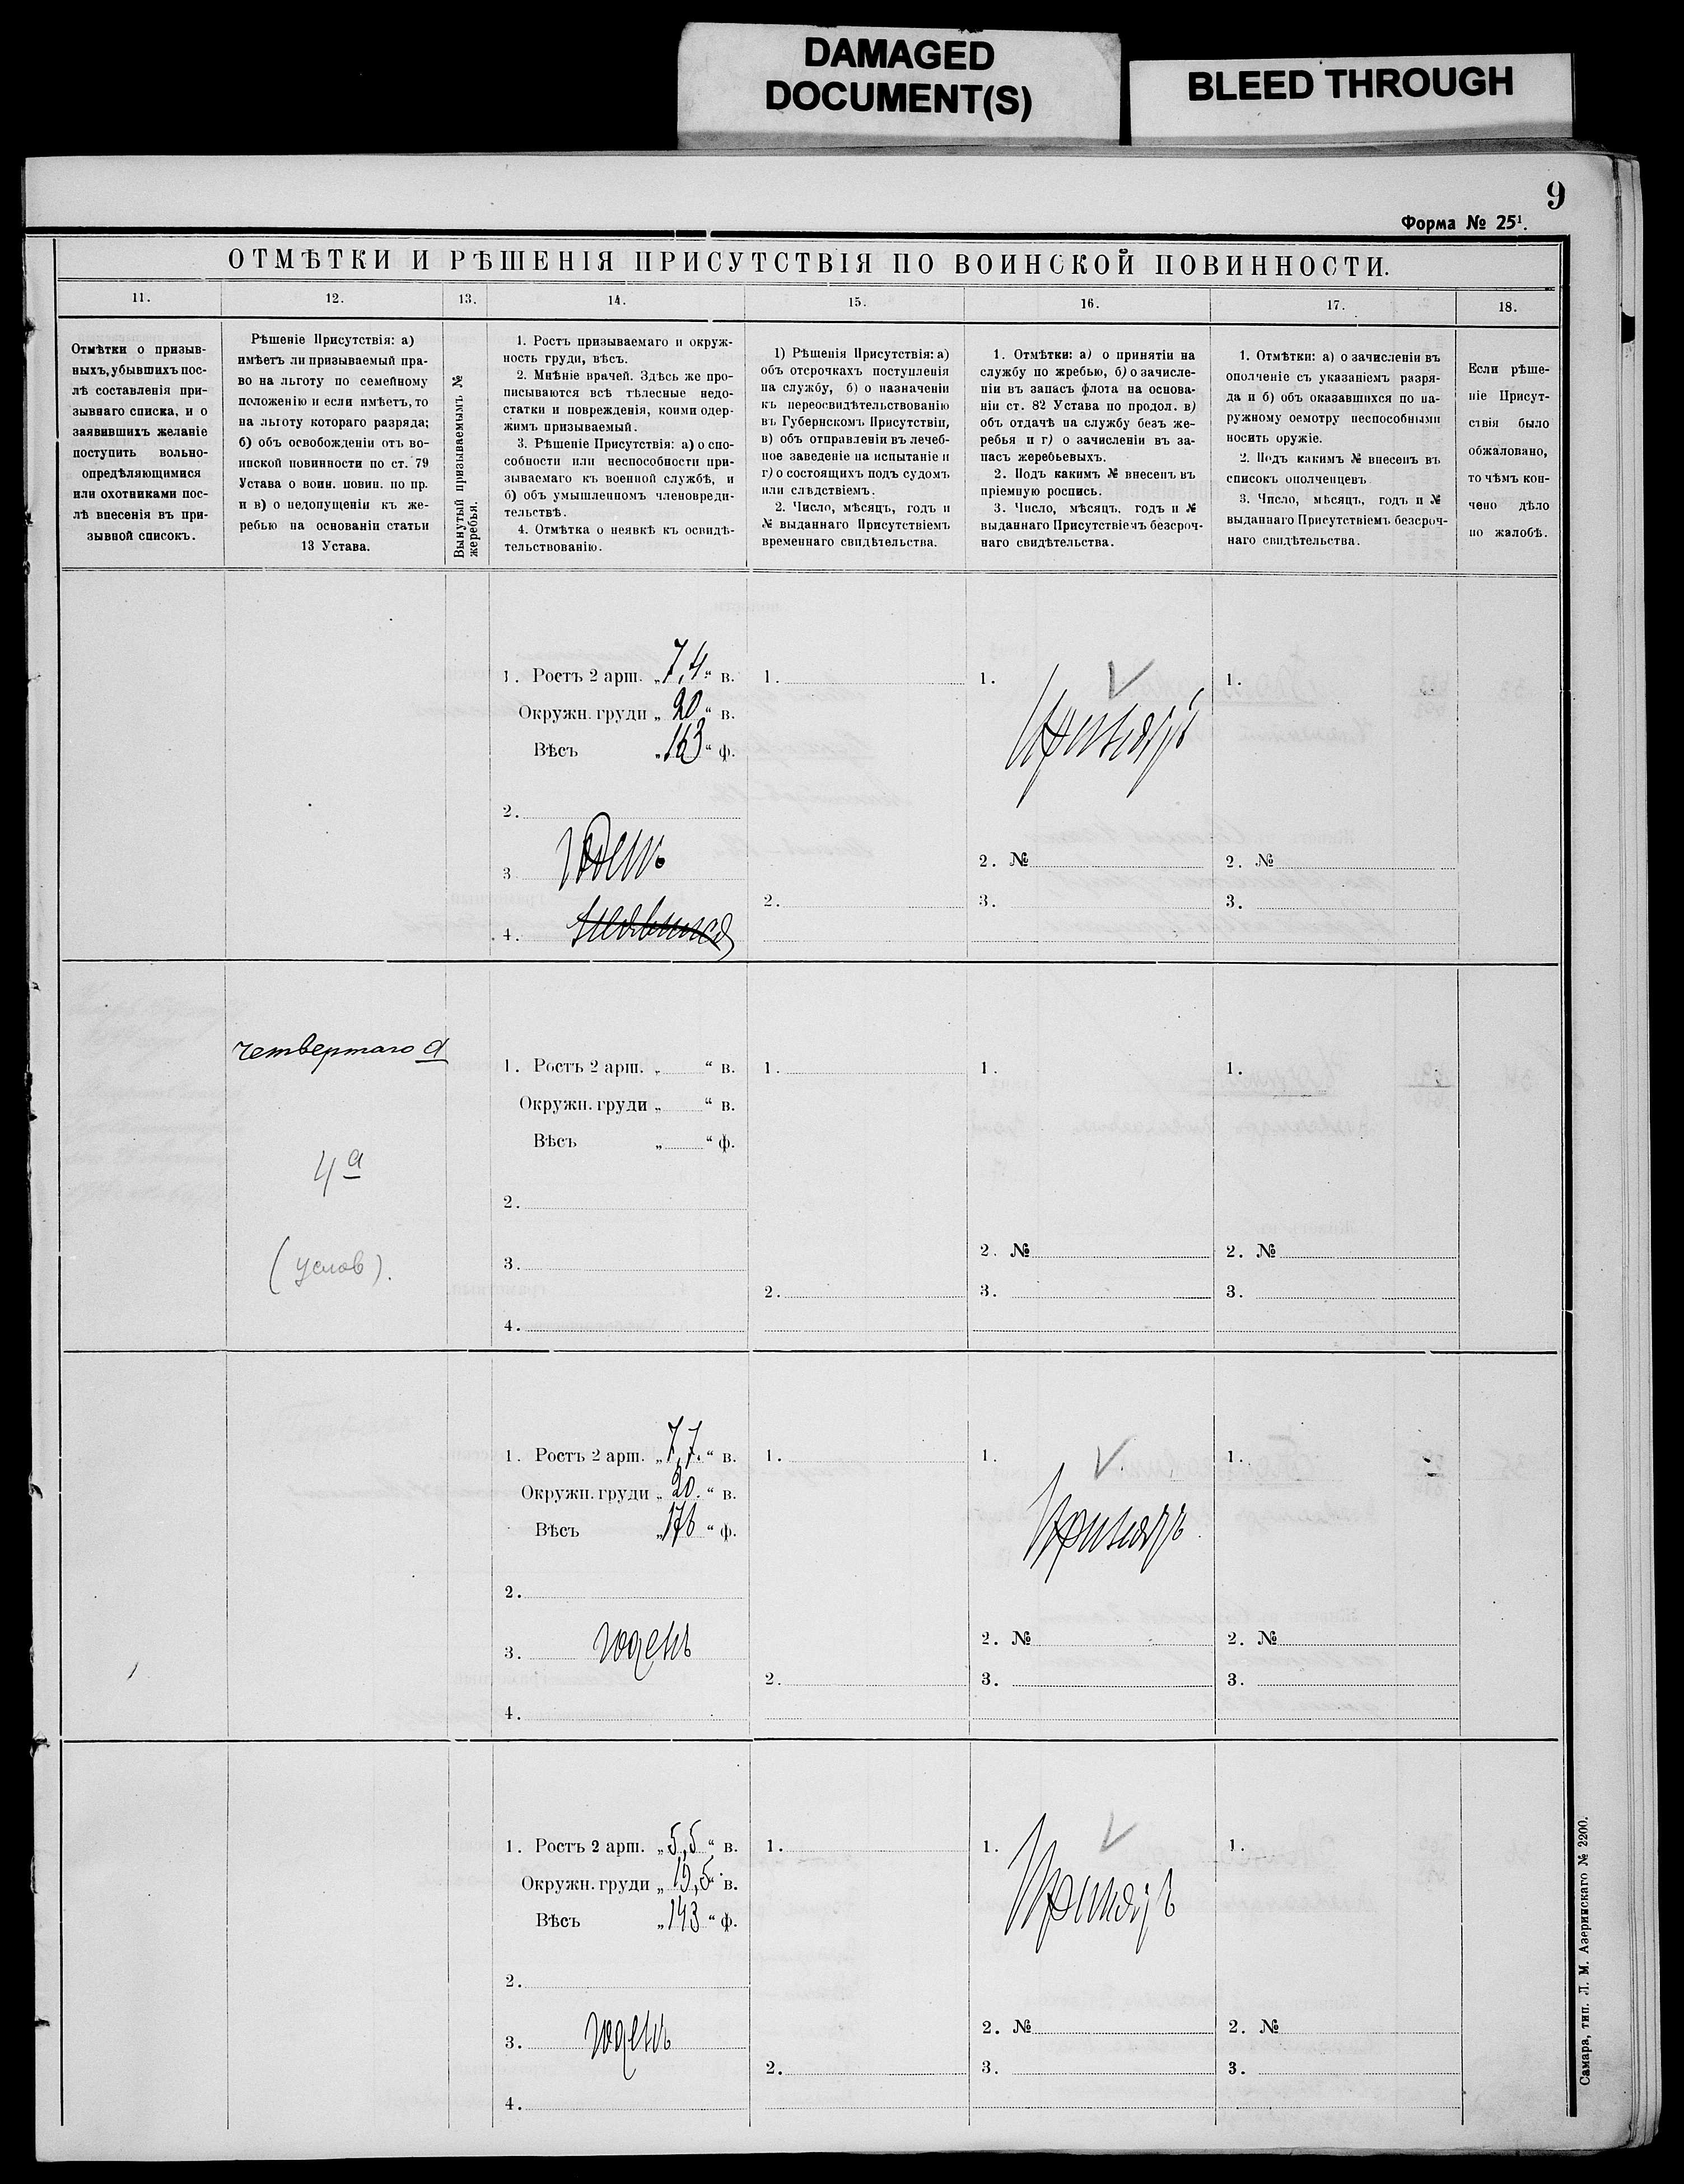 DAMAGED
DOCUMENT(S)
BLEED THROUGH
9
Форма № 25¹.
ОТМѢТКИ И РѢШЕНІЯ ПРИСУТСТВІЯ ПО ВОИНСКОЙ ПОВИННОСТИ.
11.
12.
13.
14.
15.
16.
17.
18.
Отмѣтки о призыв-
ныхъ, убывшихъ пос-
лѣ составленія при-
зывнаго списка, и о
заявившихъ желаніе
поступить вольно-
опредѣляющимися
или охотниками пос-
лѣ внесенія въ при-
зывной списокъ.
Рѣшеніе Присутствія: а)
имѣетъ ли призываемый пра-
во на льготу по семейному
положенію и если имѣетъ, то
на льготу котораго разряда;
б) объ освобожденіи отъ во-
инской повинности по ст. 79
Устава о воин. повин. по пр.
и в) о недопущеніи къ же-
ребью на основаніи статьи
13 Устава.
Вынутый призываемымъ №
жеребья.
1. Ростъ призываемаго и окруж-
ность груди, вѣсъ.
2. Мнѣніе врачей. Здѣсь же про-
писываются всѣ тѣлесные недо-
статки и поврежденія, коими одер-
жимъ призываемый.
3. Рѣшеніе Присутствія: а) о спо-
собности или неспособности при-
зываемаго къ военной службѣ, и
б) объ умышленномъ членовреди-
тельствѣ.
4. Отмѣтка о неявкѣ къ освидѣ-
тельствованію.
1) Рѣшенія Присутствія: а)
объ отсрочкахъ поступленія
на службу, б) о назначеніи
къ переосвидѣтельствованію
въ Губернскомъ Присутствіи,
в) объ отправленіи въ лечеб-
ное заведеніе на испытаніе и
г) о состоящихъ подъ судомъ
или слѣдствіемъ.
2. Число, мѣсяцъ, годъ и
№ выданнаго Присутствіемъ
временнаго свидѣтельства.
1. Отмѣтки: а) о принятіи на
службу по жребью, б) о зачисле-
ніи въ запасъ флота на основа-
ніи ст. 82 Устава по продол. в)
объ отдачѣ на службу безъ же-
ребья и г) о зачисленіи въ за-
пасъ жеребьевыхъ.
2. Подъ какимъ № внесенъ въ
пріемную роспись.
3. Число, мѣсяцъ, годъ и №
выданнаго Присутствіемъ безсроч-
наго свидѣтельства.
1. Отмѣтки: а) о зачисленіи въ
ополченіе съ указаніемъ разря-
да и б) объ оказавшихся по на-
ружному осмотру неспособными
носить оружіе.
2. Подъ какимъ № внесенъ въ
списокъ ополченцевъ
3. Число, мѣсяцъ, годъ и №
выданнаго Присутствіемъ безсроч-
наго свидѣтельства.
Если рѣше-
ніе Присут-
ствія было
обжаловано,
то чѣмъ кон-
чено дѣло
по жалобѣ.
1. Ростъ 2 арш. „7,4“ в.
Окружн. груди „20“ в.
Вѣсъ „163“ ф.
2.
3 Годенъ
4. Неявился
1.
2.
1.
Принятъ
2. №
3.
1.
2. №
3.
четвертаго а
4 а
(услов).
1. Ростъ 2 арш. „ “ в.
Окружн. груди „ “ в.
Вѣсъ „ “ ф.
2.
3.
4.
1.
2.
1.
2. №
3.
1.
2. №
3.
1. Ростъ 2 арш. „7,7.“ в.
Окружн. груди „20.“ в.
Вѣсъ „176“ ф.
2.
3. годенъ
4.
1.
2.
1.
Принятъ
2. №
3.
1.
2. №
3.
1. Ростъ 2 арш. „5,5“ в.
Окружн. груди „19,5“ в.
Вѣсъ „143“ ф.
2.
3. годенъ
4.
1.
2.
1.
Принятъ
2. №
3.
1.
2. №
3.
Самара, тип. Л. М. Азеринскаго № 2200.